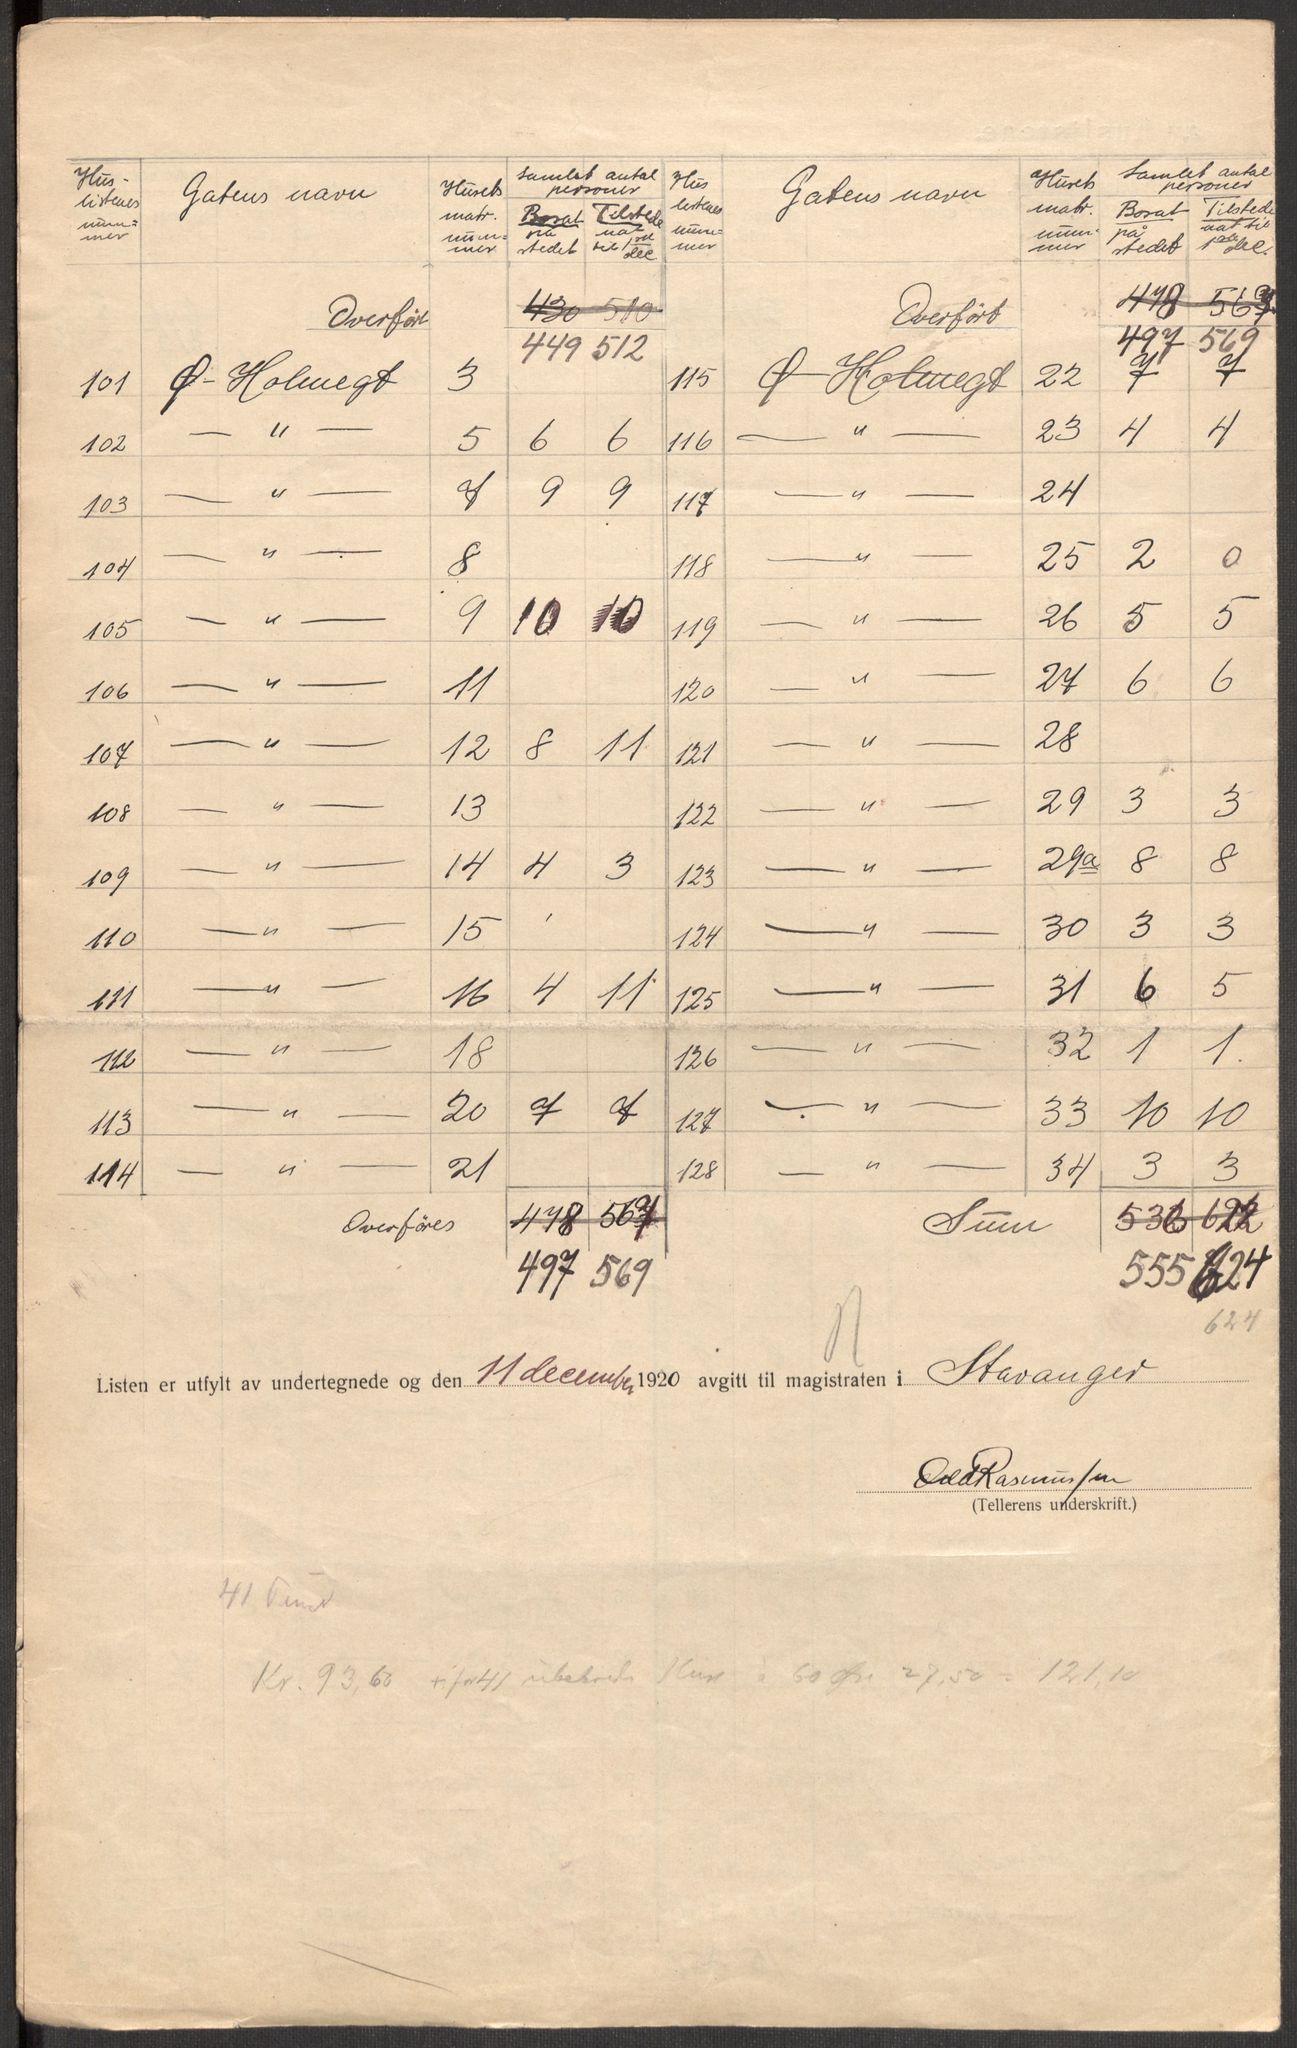 Hus- listenes num= mer | Gatens navn | Husets matr. num= mer | Samlet antal personer | Hus listenes num= mer | Gatens navn | Husets matr. num= mer | Samlet antal personer
Bosat på stedet | Tilstede nat til 1ste dec | Bosat på stedet | Tilstede nat til 1ste dec.
Overført 430 510 | Overført 478 567
449 512 | 497 569
101 Ø-Holmegt 3 | 115 Ø-Holmegt 22 7 7
102 — " — 5 6 6 | 116 — " — 23 4 4
103 — " — 7 9 9 | 117 — " — 24
104 — " — 8 | 118 — " — 25 2 0
105 — " — 9 10 10 | 119 — " — 26 5 5
106 — " — 11 | 120 — " — 27 6 6
107 — " — 12 8 11 | 121 — " — 28
108 — " — 13 | 122 — " — 29 3 3
109 — " — 14 4 3 | 123 — " — 29a 8 8
110 — " — 15 | 124 — " — 30 3 3
111 — " — 16 4 11 | 125 — " — 31 6 5
112 — " — 18 | 126 — " — 32 1 1
113 — " — 20 7 7 | 127 — " — 33 10 10
114 — " — 21 | 128 — " — 34 3 3
Overføres 478 567 | Sum 536 622
497 569 | 555 624
624
Listen er utfylt av undertegnede og den 11 december 1920 avgitt til magistraten i Stavanger
Odd Rasmussen
(Tellerens underskrift.)
41
Kr. 93,60 41 60 øre 27,50 = 121,10